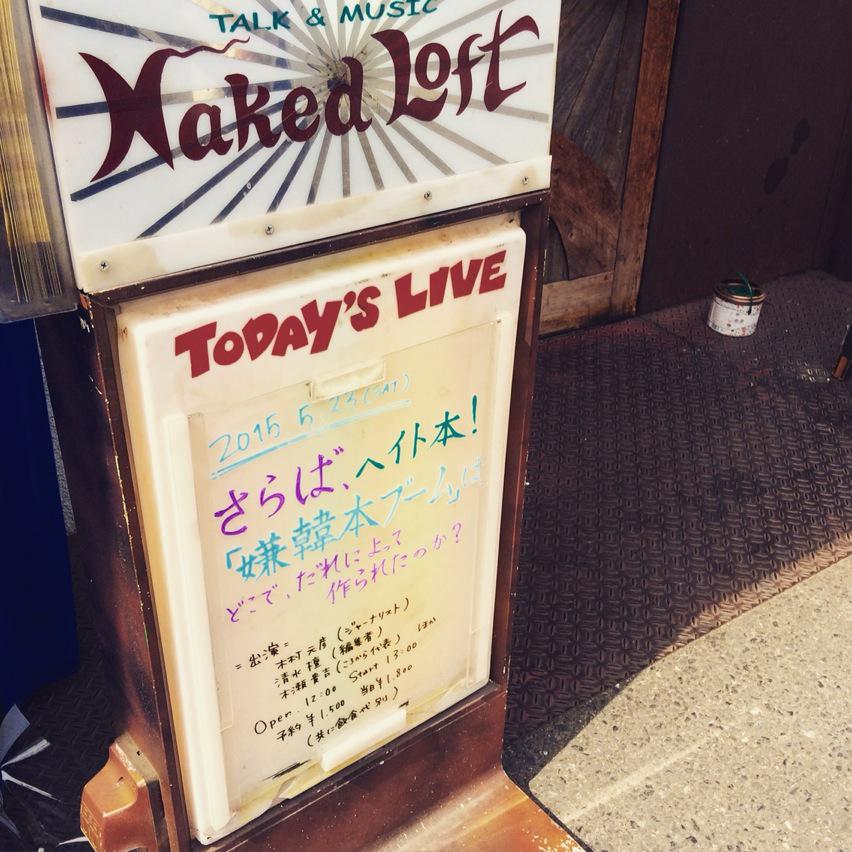 TALK & MUSIC
Naked Loft
TODAY'S LIVE
2015 5 23 (SAT)
さらば、ヘイト本!
「嫌韓本ブーム」は
どこで、だれによって
作られたのか?
=出演=
木村元彦(ジャーナリスト)
清水檀(編集者)
木瀬貴吉(ころから代表) ほか
Open 12:00 Start 13:00
予約¥1.500 当日¥1.800
(共に飲食代別)